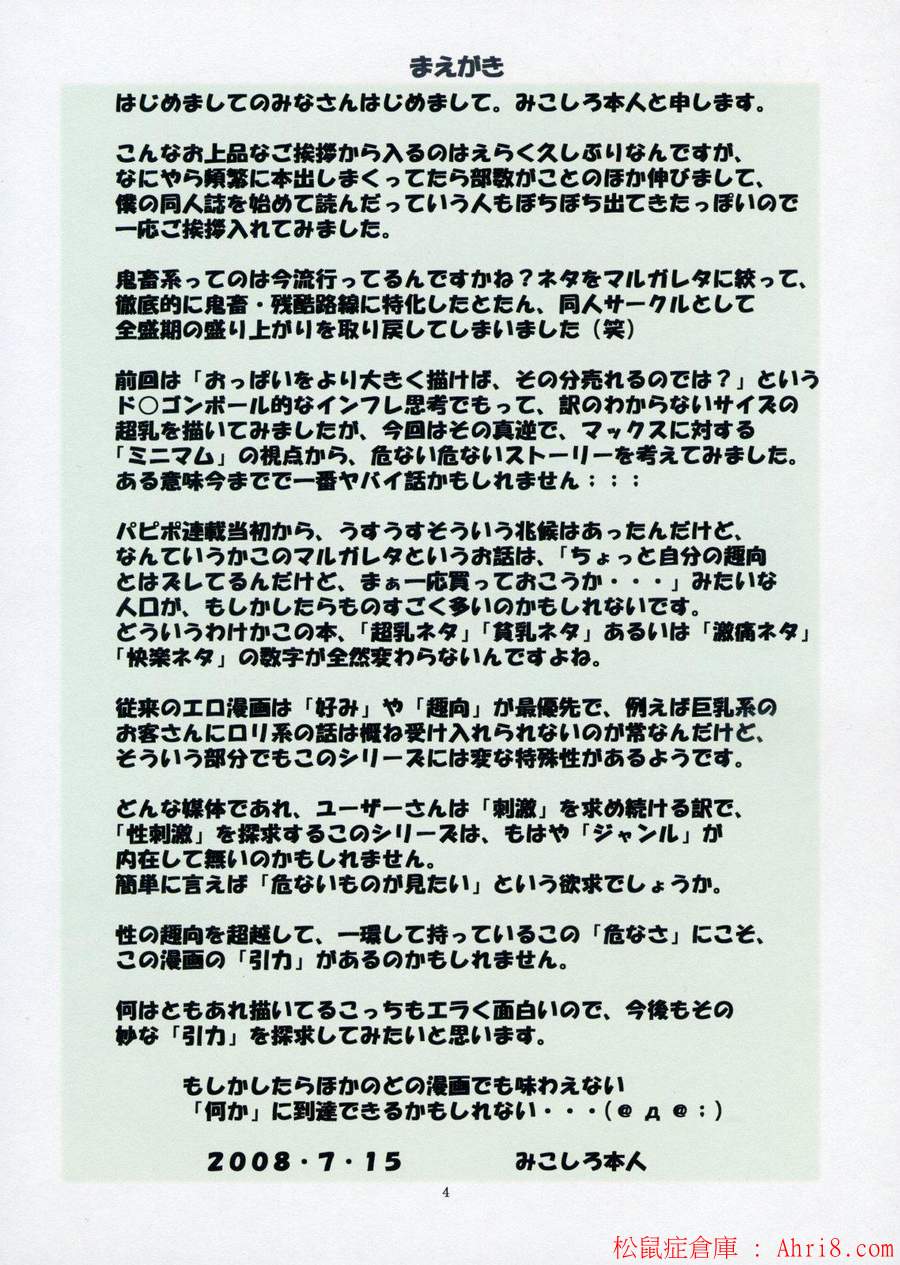 まえがき
はじめましてのみなさんはじめまして。みこしろ本人と申します。
こんなお上品なご挨拶から入るのはえらく久しぶりなんですが、
なにやら頻繁に本出しまくってたら部数がことのほか伸びまして、
僕の同人誌を始めて読んだっていう人もぼちぼち出てきたっぽいので
一応ご挨拶入れてみました。
鬼畜系ってのは今流行ってるんですかね？ネタをマルガレタに絞って、
徹底的に鬼畜・残酷路線に特化したとたん、同人サークルとして
全盛期の盛り上がりを取り戻してしまいました（笑）
前回は「おっぱいをより大きく描けば、その分売れるのでは？」という
ド○ゴンボール的なインフレ思考でもって、訳のわからないサイズの
超乳を描いてみましたが、今回はその真逆で、マックスに対する
「ミニマム」の視点から、危ない危ないストーリーを考えてみました。
ある意味今までで一番ヤバイ話かもしれません：：：
パピポ連載当初から、うすうすそういう兆候はあったんだけど、
なんていうかこのマルガレタというお話は、「ちょっと自分の趣向
とはズレてるんだけど、まぁ一応買っておこうか・・・」みたいな
人口が、もしかしたらものすごく多いのかもしれないです。
どういうわけかこの本、「超乳ネタ」「貧乳ネタ」あるいは「激痛ネタ」
「快楽ネタ」の数字が全然変わらないんですよね。
従来のエロ漫画は「好み」や「趣向」が最優先で、例えば巨乳系の
お客さんにロリ系の話は概ね受け入れられないのが常なんだけど、
そういう部分でもこのシリーズには変な特殊性があるようです。
どんな媒体であれ、ユーザーさんは「刺激」を求め続ける訳で、
「性刺激」を探求するこのシリーズは、もはや「ジャンル」が
内在して無いのかもしれません。
簡単に言えば「危ないものが見たい」という欲求でしょうか。
性の趣向を超越して、一環して持っているこの「危なさ」にこそ、
この漫画の「引力」があるのかもしれません。
何はともあれ描いてるこっちもエラく面白いので、今後もその
妙な「引力」を探求してみたいと思います。
もしかしたらほかのどの漫画でも味わえない
「何か」に到達できるかもしれない・・・（＠д＠；）
２００８・７・１５　みこしろ本人
4
松鼠症倉庫 : Ahri8.com